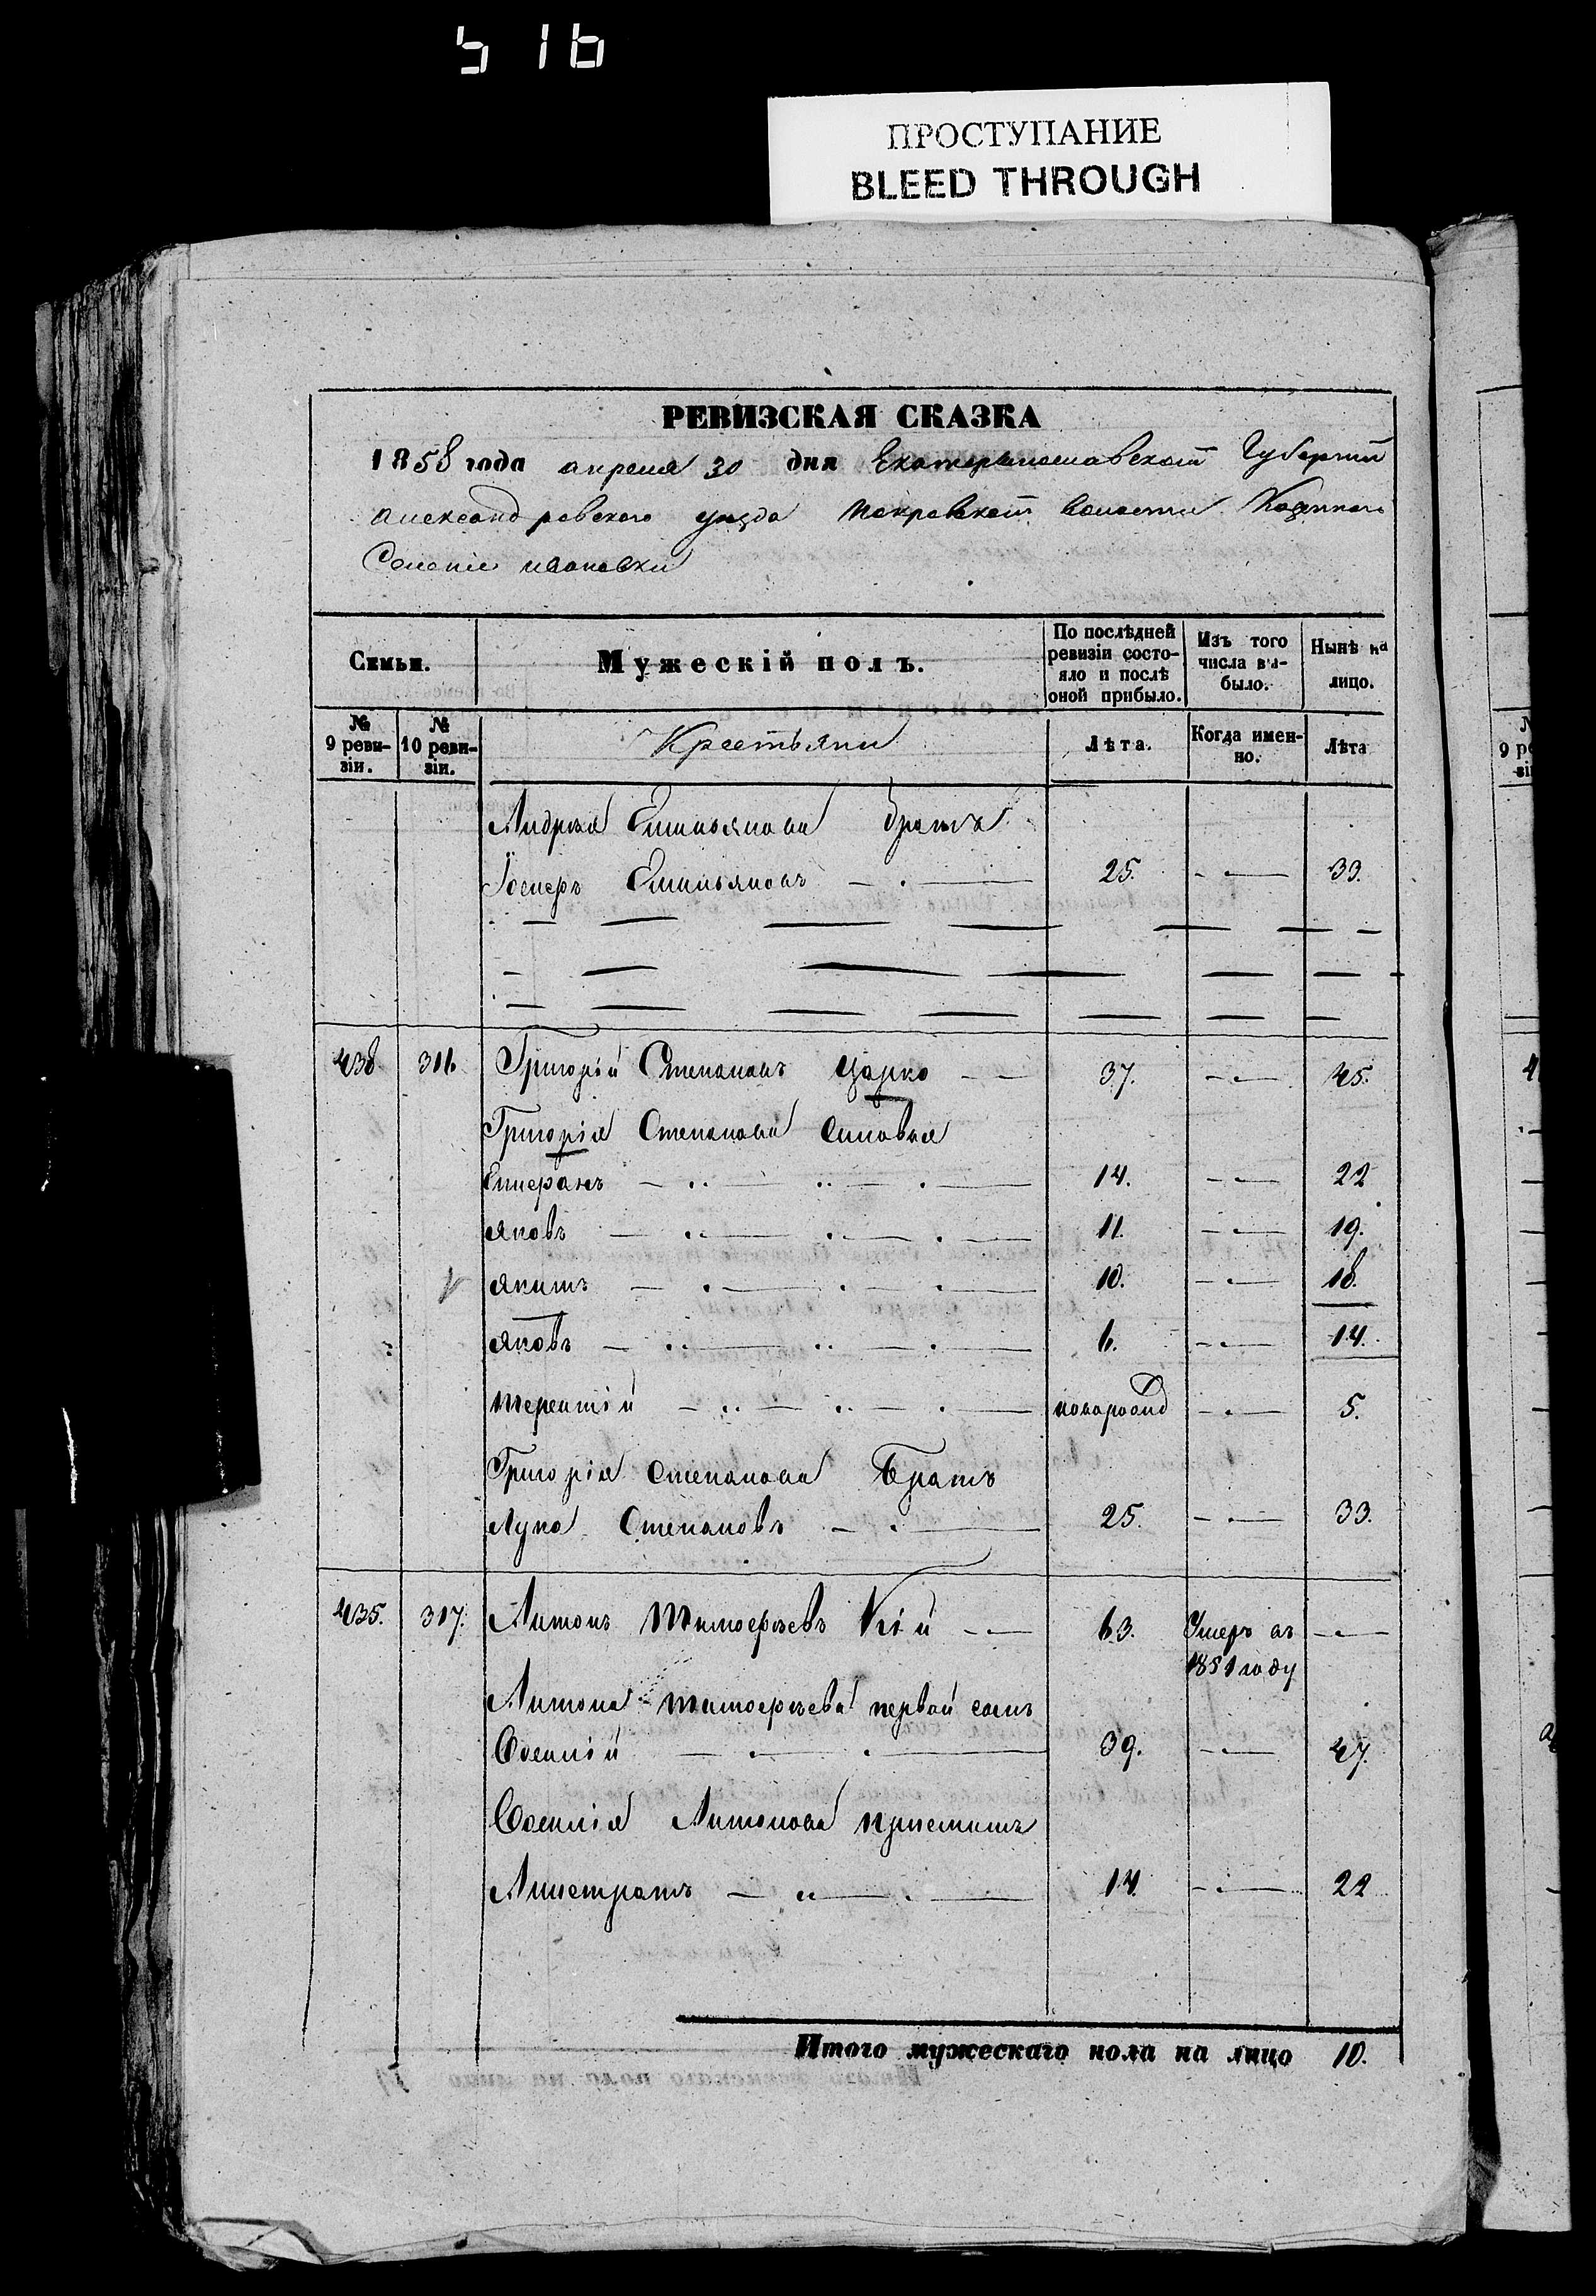 516
ПРОСТУПАНИЕ
BLEED THROUGH
РЕВИЗСКАЯ СКАЗКА
1858 года апреля 30 дня Екатеринославской Губернии
Александровского уезда Покровской волости Казенного
Селения
Семьи. Мужескій полъ. По послѣдней ревизіи состояло и послѣ оной прибыло. Изъ того числа выбыло. Нынѣ на лицо.
№ 9 ревизіи. № 10 ревизіи. Крестьяни Лѣта. Когда именно. Лѣта
Андрея Емельянова братъ
Емельяновъ 25. 33.
438 316 Григорій Степановъ Царко 37. 45.
Григорія Степанова сыновья
14. 22
Яковъ 11. 19.
Якимъ 10. 18.
Яковъ 6. 14.
Терентій новорожд 5.
Григорія Степанова Братъ
Лука Степановъ 25. 33.
435. 317. Антонъ Тимофѣевъ Кій 63. Умеръ въ
1851 году
Антона Тимофѣева первой сынъ
39. 47.
Антонова приемышъ
14. 22
Итого мужескаго пола на лицо 10.